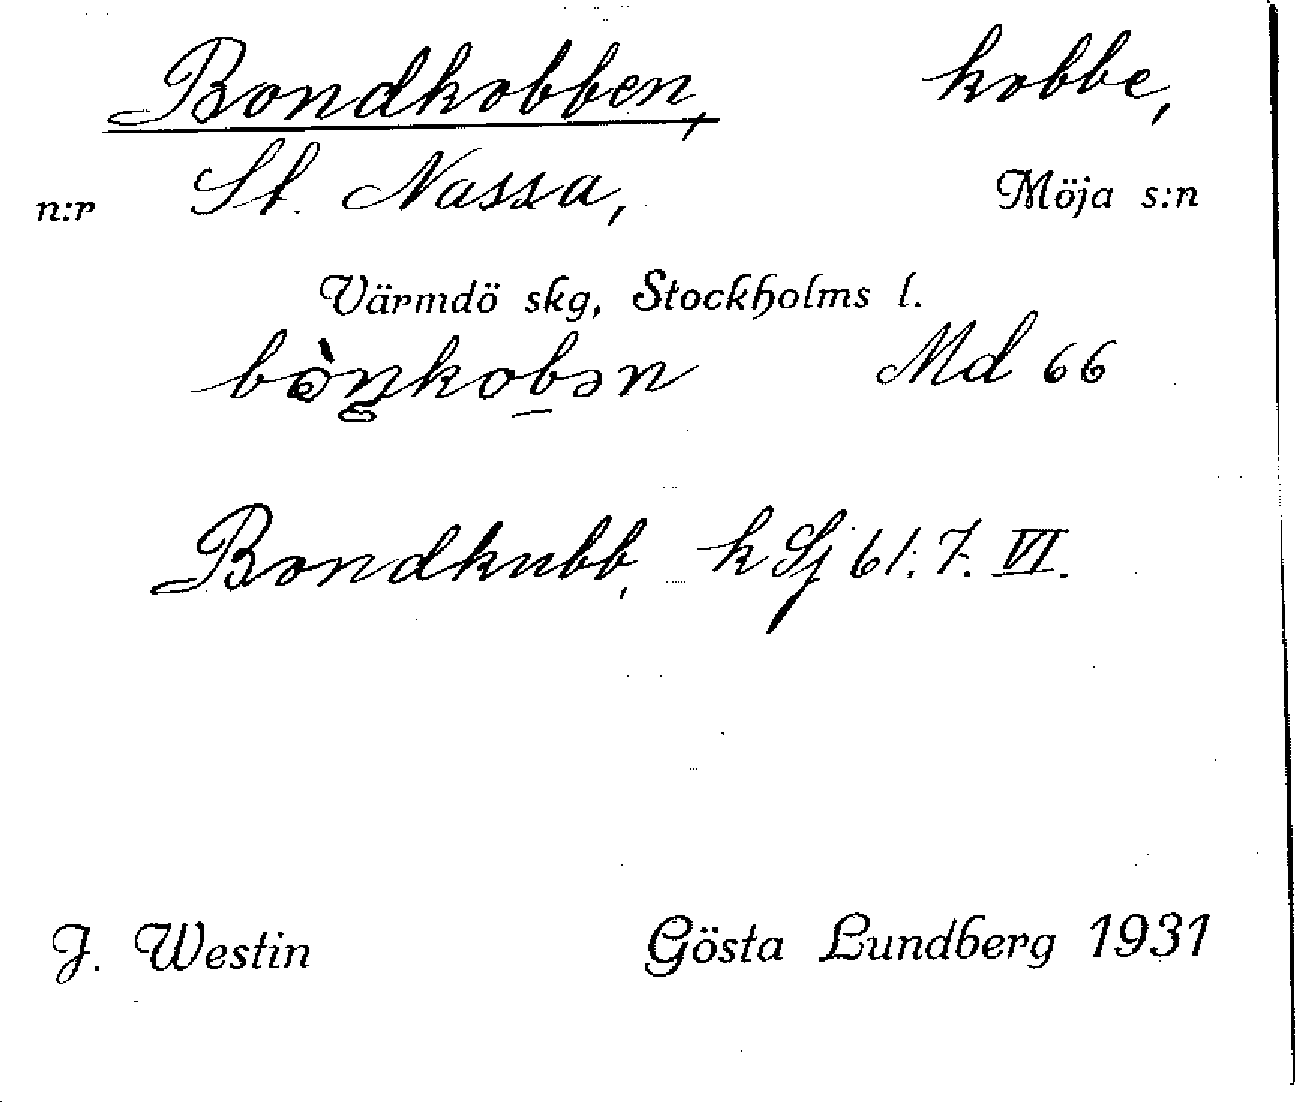 Bondkobben, kobbe,
n:r St. Nassa, Möja s:n
Värmdö skg, Stockholms l.
bòn̥kob̠ən Md 66
Bondkubb, k Sj 61:7. VI.
J. Westin Gösta Lundberg 1931